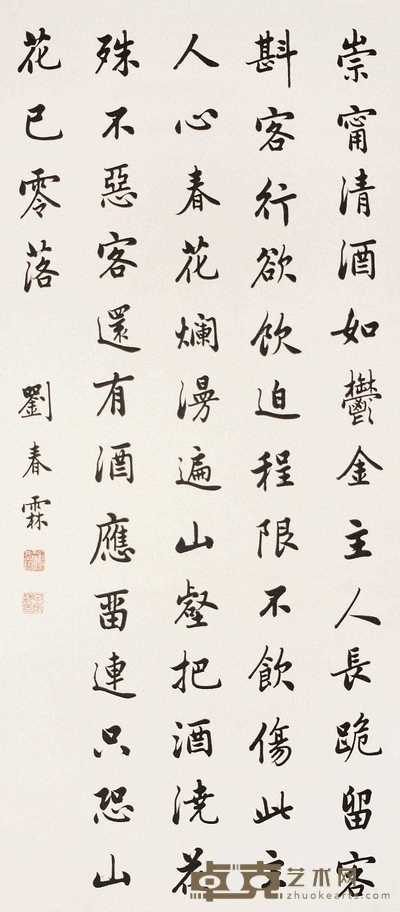 崇甯清酒如鬱金主人長跪留客
斟客行欲飲迫程限不飲傷此主
人心春花爛漫遍山壑把酒澆花
殊不惡客還有酒應畱連只恐山
花已零落
劉春霖
卓克艺术网
www.zhuokearts.com